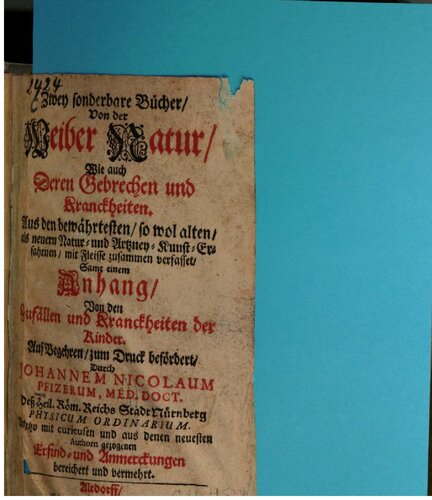 1424
Zwey sonderbare Bücher/
Von der
Weiber Natur/
Wie auch
Deren Gebrechen und
Kranckheiten.
Aus den bewährtesten/ so wol alten/
als neuern Natur- und Artzney-Kunst-Er-
fahrnen/ mit Fleisse zusammen verfasset/
Samt einem
Anhang/
Von den
Zufällen und Kranckheiten der
Kinder.
Auf Begehren/ zum Druck befördert/
Durch
JOHANNEM NICOLAUM
PFIZERUM, MED. DOCT.
Deß Heil. Röm. Reichs Stadt Nürnberg
PHYSICUM ORDINARIUM.
mit curieusen und aus denen neuesten
Authorn gezogenen
Erfind- und Anmerckungen
bereichert und vermehrt.
Altdorff/